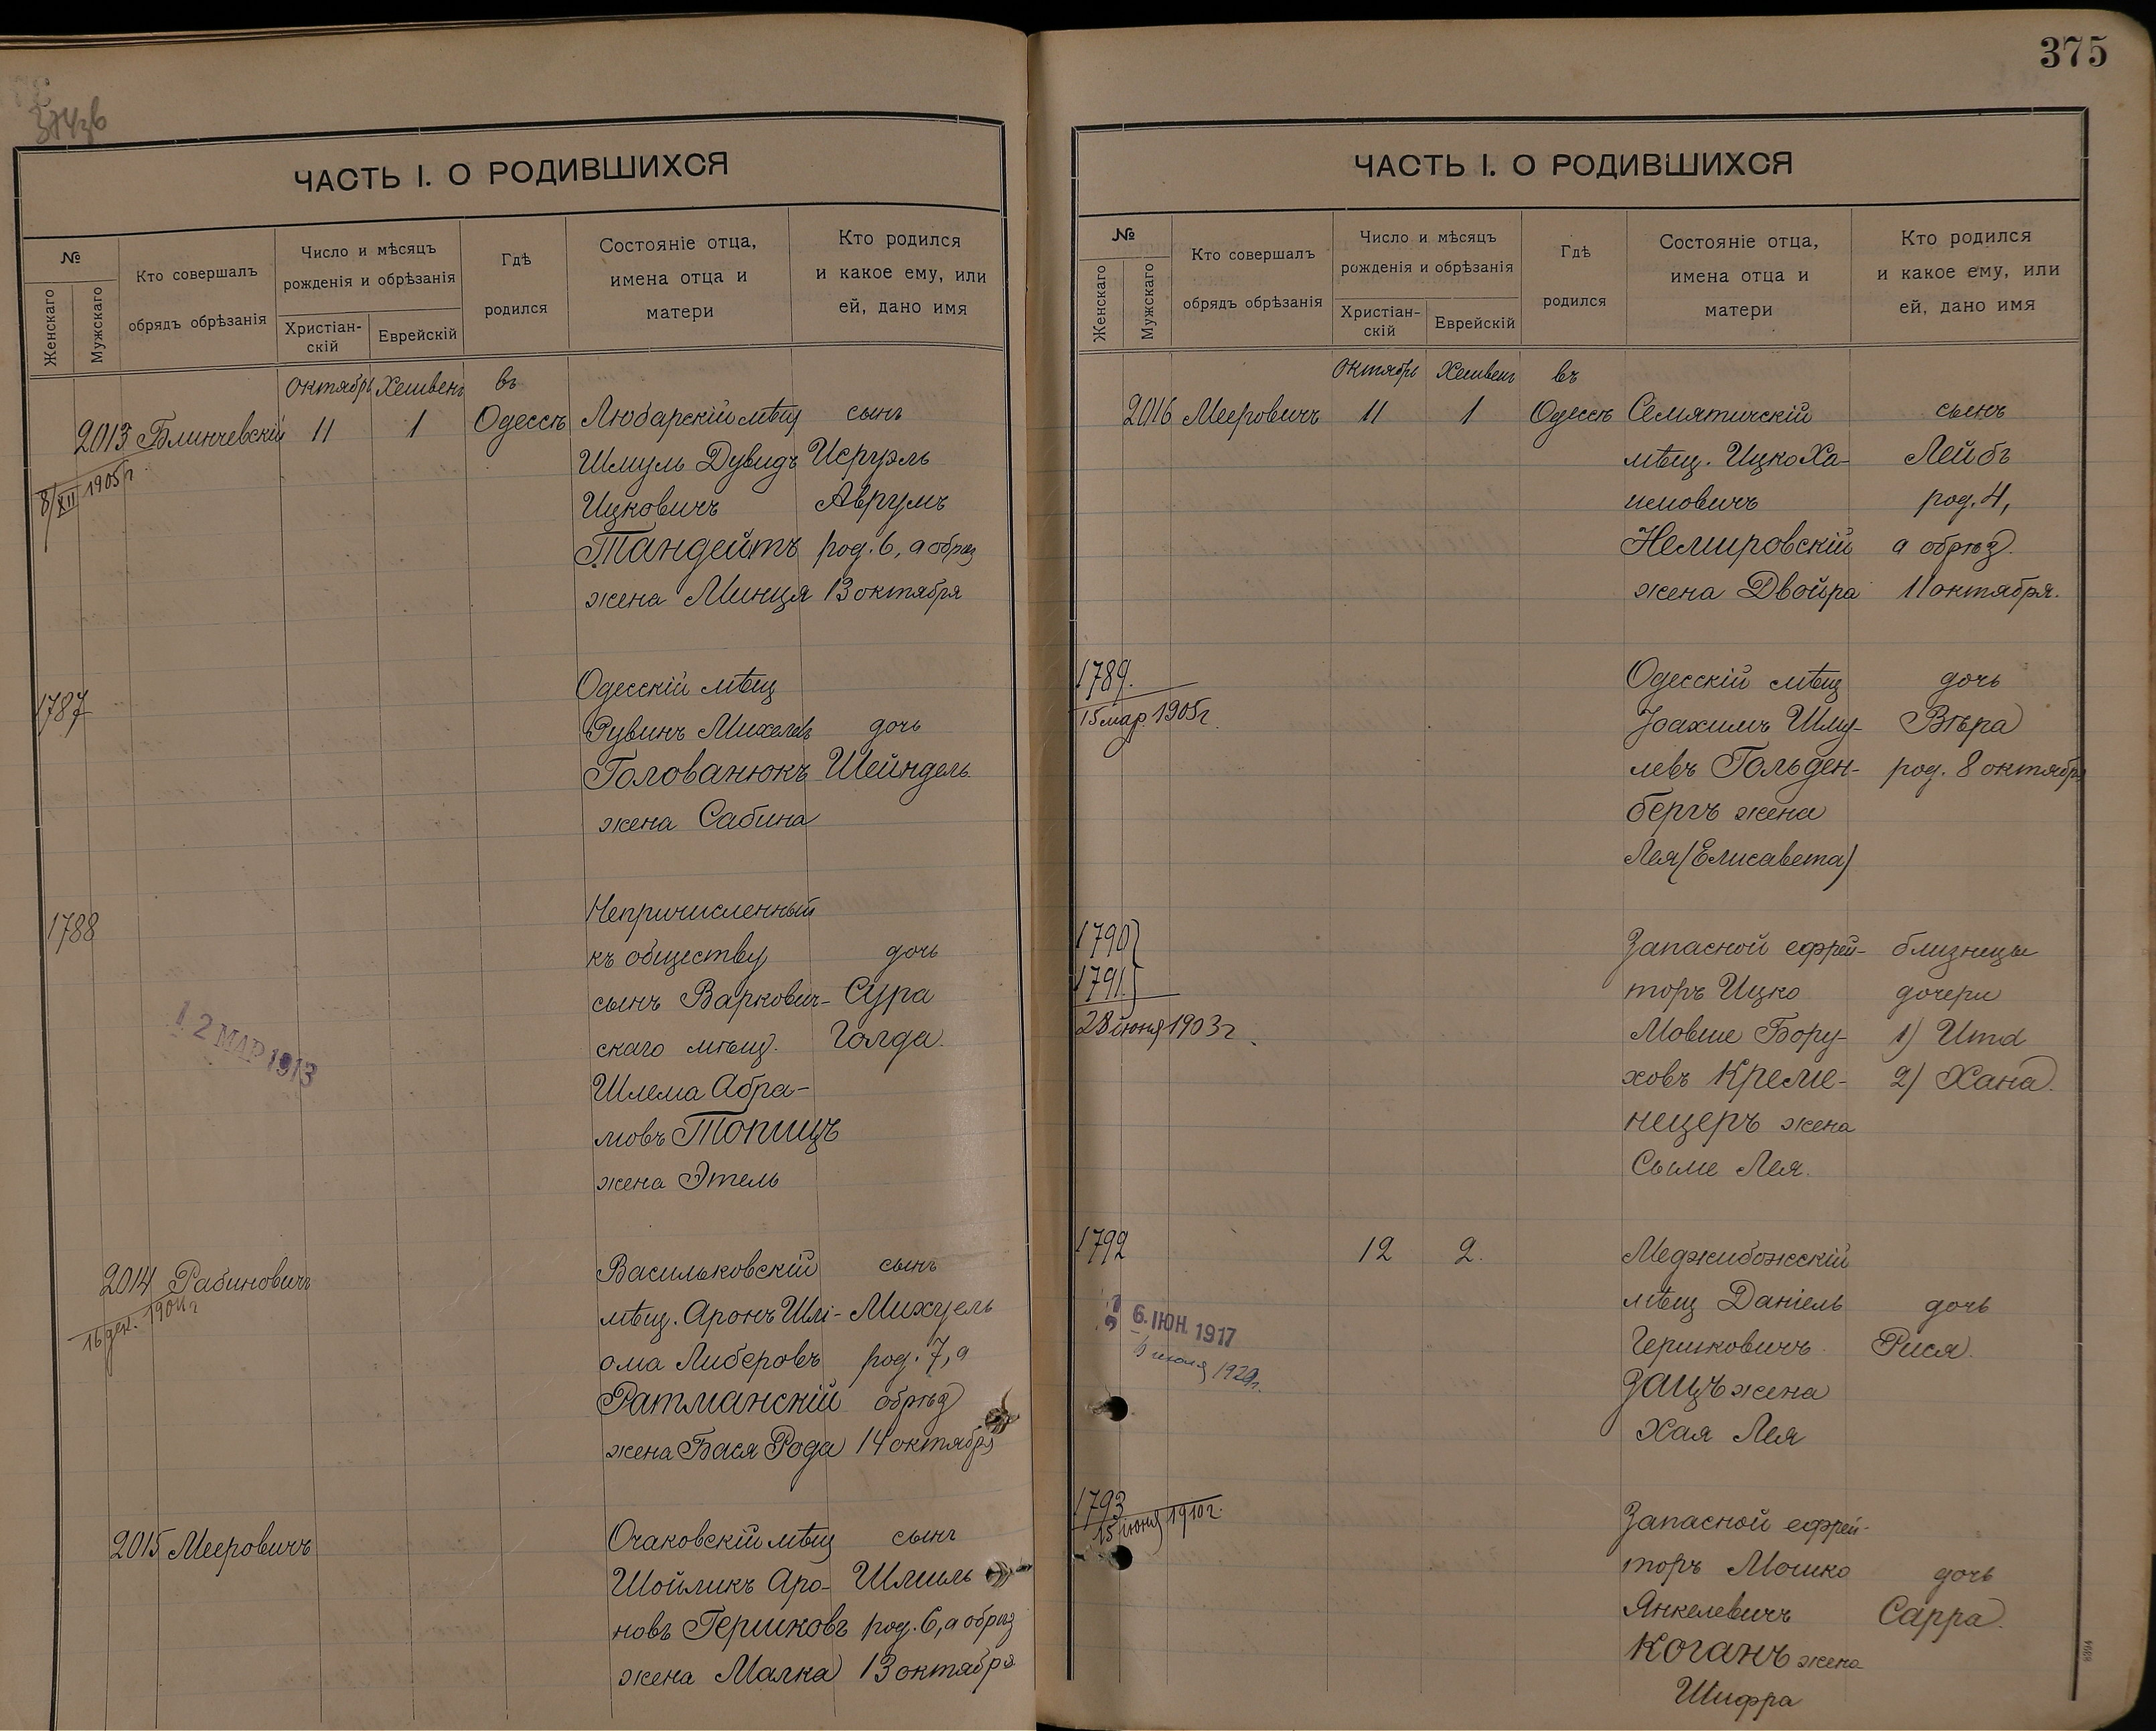 ЧАСТЬ I. О РОДИВШИХСЯ
№
Женскаго
Мужскаго
Кто совершалъ
обрядъ обрѣзанія
Число и мѣсяцъ
рожденія и обрѣзанія
Христіан-
скій
Еврейскій
Гдѣ
родился
Состояніе отца,
имена отца и
матери
Кто родился
и какое ему, или
ей, дано имя
октябрь Хешвенъ въ
2013 Блинчевскій 11 1 Одессѣ Любарскій мѣщ сынъ
8/XII 1905 г
Шмуль Дувидъ Исруэль
Ицковичъ Аврумъ
Тандейтъ род. 6, а обрѣз
жена Минця 13 октября
1787
Одесскій мѣщ
Рувинъ Михелевъ дочь
Голованюкъ Шейндель
жена Сабина
1788
Непричисленный
къ обществу дочь
сынъ Варкович- Сура
скаго мѣщ. Голда
Шлема Абра-
мовъ Топищъ
жена Этель
12 МАР 1913
2014 Рабиновичъ Васильковскій сынъ
16 дек. 1904 г
мѣщ. Аронъ Шлі- Михуель
ома Либеровъ род. 7, а
Ратманскій обрѣз
жена Бася Рода 14 октября
2015 Мееровичъ Очаковскій мѣщ сынъ
Шойликъ Аро- Шлиль
новъ Гершковъ род. 6, а обрѣз
жена Малка 13 октября
375
ЧАСТЬ I. О РОДИВШИХСЯ
№
Женскаго
Мужскаго
Кто совершалъ
обрядъ обрѣзанія
Число и мѣсяцъ
рожденія и обрѣзанія
Христіан-
скій
Еврейскій
Гдѣ
родился
Состояніе отца,
имена отца и
матери
Кто родился
и какое ему, или
ей, дано имя
Октябрь Хешвенъ въ
2016 Мееровичъ 11 1 Одессѣ Семятичскій сынъ
мѣщ. Ицко Ха- Лейбъ
имовичъ род. 4,
Немировскій а обрѣз.
жена Двойра 11 октября.
1789.
15 мар. 1905 г.
Одесскій мѣщ дочь
Іоахимъ Шму- Вѣра
левъ Гольден- род. 8 октября
бергъ жена
Лея (Елисавета)
1790
1791
28 июня 1903 г.
Запасной ефрей- близнецы
торъ Ицко дочери
Мовше Бору- 1) Ита
ховъ Креме- 2) Хана.
нецеръ жена
Сыме Лея.
1792 12 2. Меджибожскій
мѣщ Даніель дочь
Гершковичъ Рися.
Зацъ жена
Хая Лея
6. ІЮН. 1917
1793
15 июня 1910 г.
Запасной ефрей-
торъ Мошко дочь
Янкелевичъ Сарра.
Коганъ жена
Шифра